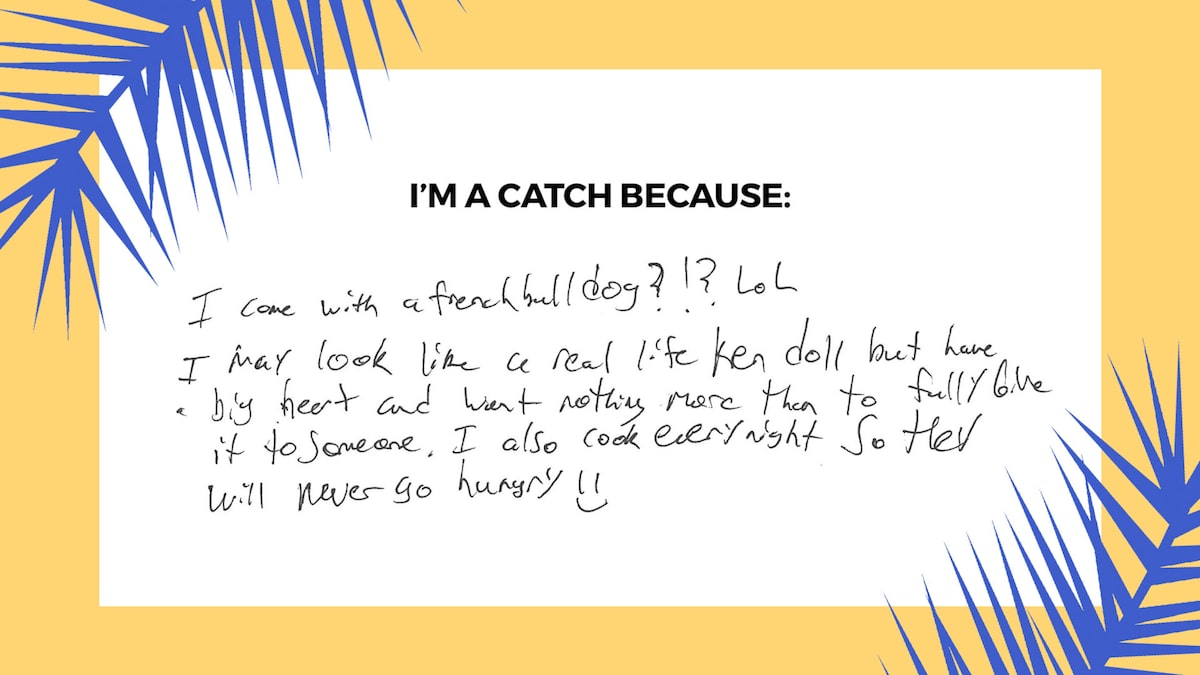 I'M A CATCH BECAUSE:
I come with a french bulldog?!? LOL
I may look like a real life Ken doll but have
a big heart and want nothing more than to fully give
it to someone. I also cook every night so they
will never go hungry!!